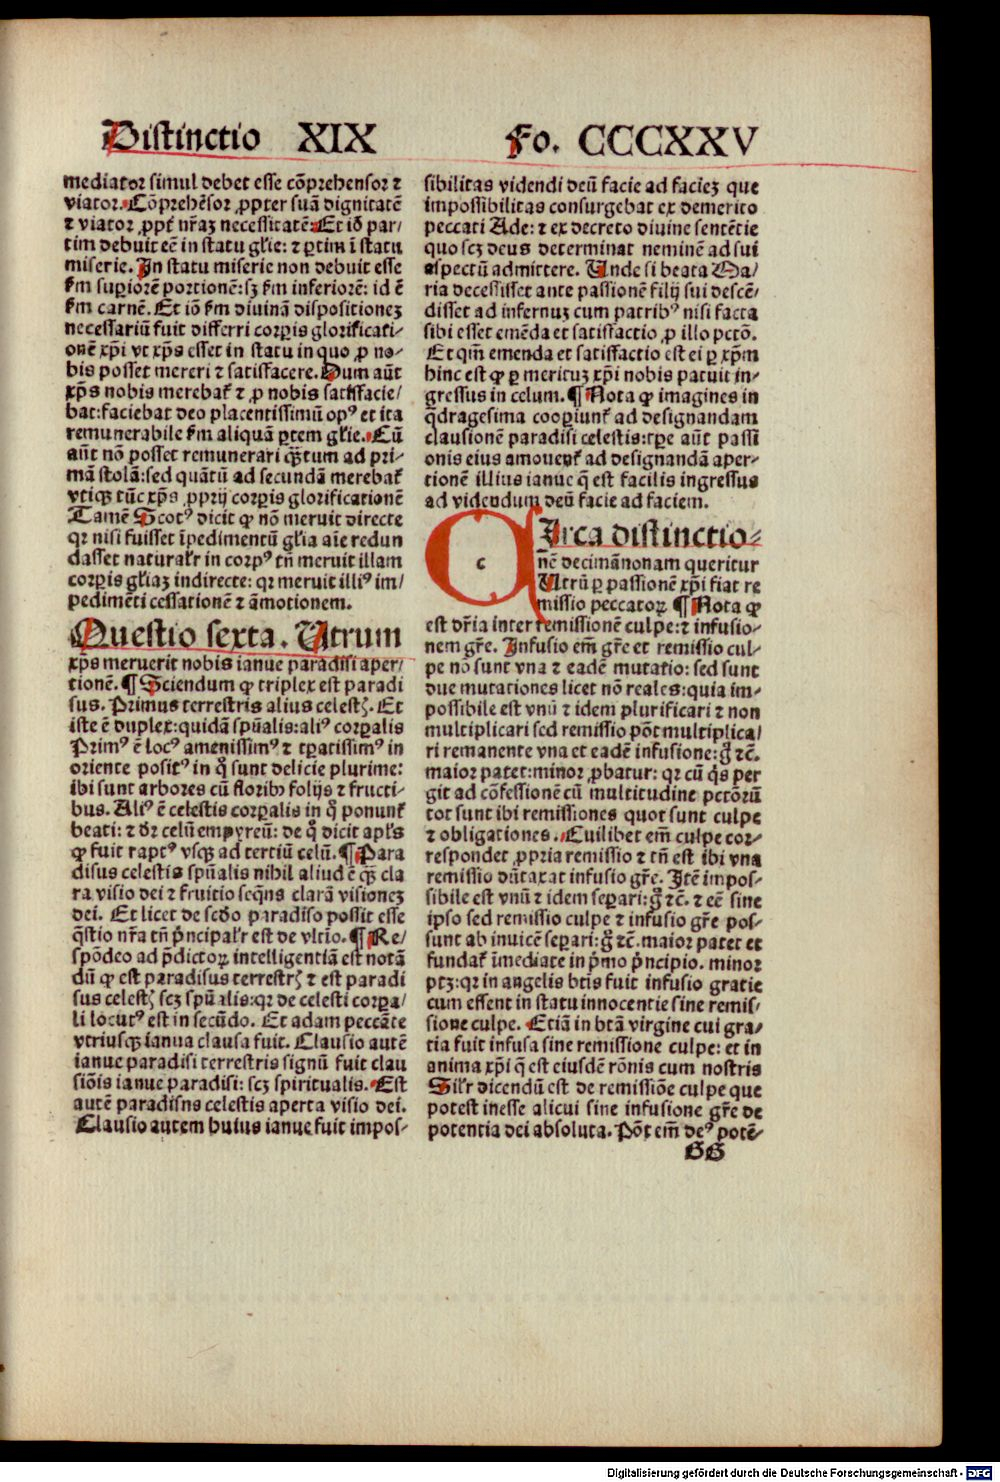 Distinctio XIX
Fo. CCCXXV
mediator simul debet esse cõprehensor ⁊
viator. Cõprehẽsor ꝓpter suã dignitatẽ
⁊ viator ꝓpt̃ nr̃aꝫ necessitatẽ: Et iõ par-
tim debuit eẽ in statu gl̃ie: ⁊ ꝑtim ĩ statu
miserie. In statu miserie non debuit esse
ẜm suꝑiorẽ portionẽ: sꝫ ẜm inferiorẽ: id ẽ
ẜm carnẽ. Et iõ ẜm diuinã dispositioneꝫ
necessariũ fuit differri corꝑis glorificati-
onẽ xp̃i vt xp̃s esset in statu in quo ꝓ no-
bis posset mereri ⁊ satisfacere. Dum aũt
xp̃s nobis merebat̃ ⁊ ꝓ nobis satisfacie/
bat: faciebat deo placentissimũ opꝰ et ita
remunerabile ẜm aliquã ꝑtem gl̃ie. Cũ
aũt nõ posset remunerari qꝫtum ad pri-
mã stolã: sed quãtũ ad secundã merebat̃
vtiqꝫ tũc xp̃s ꝓprij corꝑis glorificationẽ
Tamẽ Scotꝰ dicit ꝙ nõ meruit directe
qꝛ nisi fuisset ĩpedimentũ gl̃ia aĩe redun
dasset naturalr̃ in corpꝰ tñ meruit illam
corꝑis gl̃iaꝫ indirecte: qꝛ meruit illiꝰ im/
pedimẽti cessationẽ ⁊ ãmotionem.
Questio sexta. Utrum
xp̃s meruerit nobis ianue paradisi aper/
tionẽ. ¶ Sciendum ꝙ triplex est paradi
sus. Primus terrestris alius celestꝭ. Et
iste ẽ duplex: quidã spũalis: aliꝰ corꝑalis
Primꝰ ẽ locꝰ amenissimꝰ ⁊ tꝑatissimꝰ in
oriente positꝰ in q̊ sunt delicie plurime:
ibi sunt arbores cũ floribꝫ folijs ⁊ fructi-
bus. Aliꝰ ẽ celestis corꝑalis in q̊ ponunt̃
beati: ⁊ dr̃ celũ empyreũ: de q̊ dicit apl̃s
ꝙ fuit raptꝰ vsqꝫ ad tertiũ celũ. ¶ Para
disus celestis spũalis nihil aliud ẽ qꝫ cla
ra visio dei ⁊ fruitio seq̃ns clarã visioneꝫ
dei. Et licet de scd̃o paradiso possit esse
q̃stio nr̃a tñ p̃ncipalr̃ est de vltĩo. ¶ Re/
spõdeo ad p̃dictoꝝ intelligentiã est notã
dũ ꝙ est paradisus terrestrꝭ ⁊ est paradi
sus celestꝭ scꝫ spũalis: qꝛ de celesti corꝑa/
li locutꝰ est in secũdo. Et adam peccãte
vtriusqꝫ ianua clausa fuit. Clausio autẽ
ianue paradisi terrestris signũ fuit clau
siõis ianue paradisi: scꝫ spiritualis. Est
autẽ paradisns celestis aperta visio dei.
Clausio autem huius ianue fuit impos-
sibilitas videndi deũ facie ad facieꝫ que
impossibilitas consurgebat ex demerito
peccati Ade: ⁊ ex decreto diuine sentẽtie
quo scꝫ deus determinat neminẽ ad sui
aspectũ admittere. Unde si beata Ma/
ria decessisset ante passionẽ filij sui descẽ/
disset ad infernuꝫ cum patribꝰ nisi facta
sibi esset emẽda et satisfactio ꝓ illo pctõ.
Et qm̃ emenda et satisfactio est ei ꝑ xp̃m
hinc est ꝙ ꝑ merituꝫ xp̃i nobis patuit in-
gressus in celum. ¶ Nota ꝙ imagines in
q̃dragesima cooꝑiunt̃ ad designandam
clausionẽ paradisi celestis: tꝑe aũt passi
onis eius amouent̃ ad designandã aper-
tionẽ illius ianue q̃ est facilis ingressus
ad videndum deũ facie ad faciem.
c
CIrca distinctio-
nẽ decimãnonam queritur
Utrũ ꝑ passionẽ xp̃i fiat re
missio peccatoꝝ ¶ Nota ꝙ
est dr̃ia inter remissionẽ culpe: ⁊ infusio-
nem gr̃e. Infusio em̃ gr̃e et remissio cul-
pe nõ sunt vna ⁊ eadẽ mutatio: sed sunt
due mutationes licet nõ reales: quia im-
possibile est vnũ ⁊ idem plurificari ⁊ non
multiplicari sed remissio põt multiplica/
ri remanente vna et eadẽ infusione: g̊ ⁊c̃.
maior patet: minor ꝓbatur: qꝛ cũ q̃s per
git ad cõfessionẽ cũ multitudine pctõrũ
tot sunt ibi remissiones quot sunt culpe
⁊ obligationes. Cuilibet em̃ culpe cor-
respondet ꝓpria remissio ⁊ tñ est ibi vna
remissio dũtaxat infusio gr̃e. Itẽ impos-
sibile est vnũ ⁊ idem seꝑari: g̊ ⁊c̃. ⁊ eẽ sine
ipso sed remissio culpe ⁊ infusio gr̃e pos-
sunt ab inuicẽ seꝑari: g̊ ⁊c̃. maior patet et
fundat̃ ĩmediate in p̃mo p̃ncipio. minor
ptꝫ: qꝛ in angelis btĩs fuit infusio gratie
cum essent in statu innocentie sine remis-
sione culpe. Etiã in btã virgine cui gra-
tia fuit infusa sine remissione culpe: et in
anima xp̃i q̃ est eiusdẽ rõnis cum nostris
Silr̃ dicendũ est de remissiõe culpe que
potest inesse alicui sine infusione gr̃e de
potentia dei absoluta. Põt em̃ deꝰ potẽ-
GG
Digitalisierung gefördert durch die Deutsche Forschungsgemeinschaft - DFG